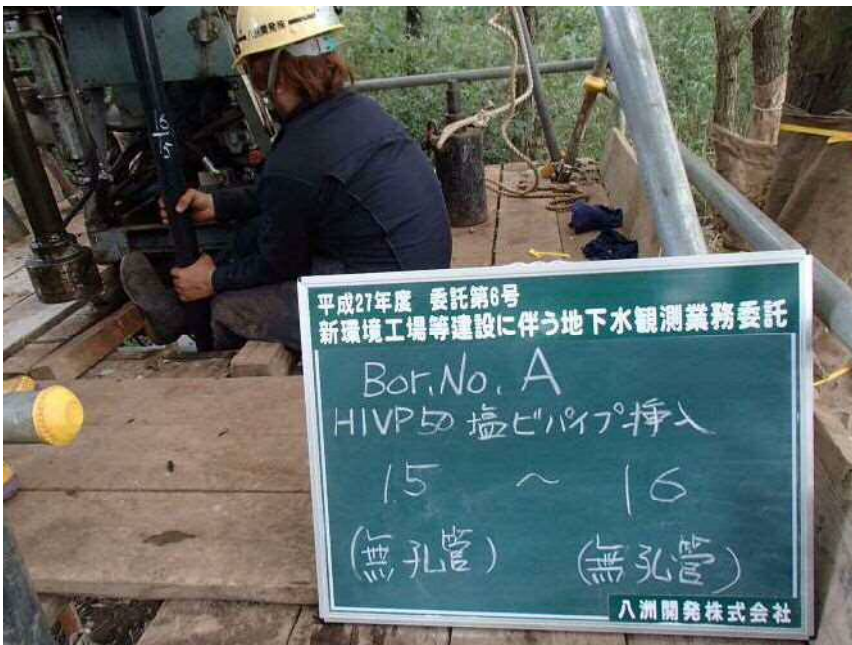 八洲開発㈱
15
平成27年度 委託第6号
新環境工場等建設に伴う地下水観測業務委託
Bor.No. A
HIVP50 塩ビパイプ挿入
15 ~ 16
(無孔管) (無孔管)
八洲開発株式会社